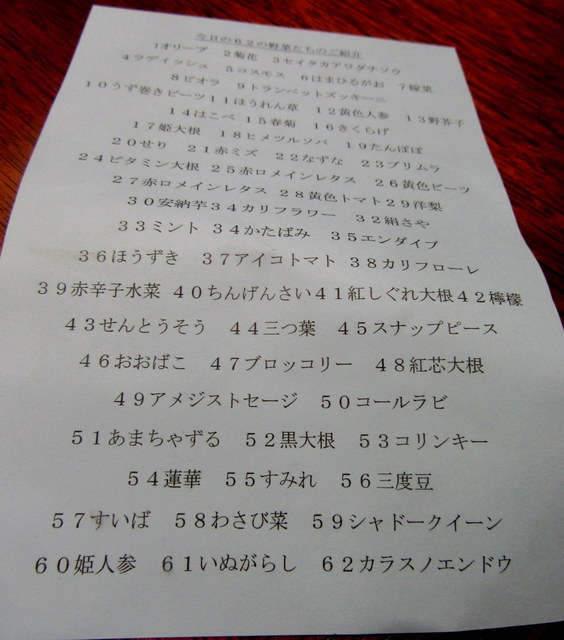 今日の62の野菜たちのご紹介
1オリーブ 2菊花 3セイタカアワダチソウ
4ラディッシュ 5コスモス 6はまひるがお 7嫁菜
8ビオラ 9トランペットズッキーニ
10うず巻きビーツ11ほうれん草 12黄色人参 13野芥子
14はこべ 15春菊 16きくらげ
17姫大根 18ヒメツルソバ 19たんぽぽ
20せり 21赤ミズ 22なずな 23プリムラ
24ビタミン大根 25赤ロメインレタス 26黄色ビーツ
27赤ロメインレタス 28黄色トマト29洋梨
30安納芋34カリフラワー 32絹さや
33ミント 34かたばみ 35エンダイブ
36ほうずき 37アイコトマト 38カリフローレ
39赤辛子水菜 40ちんげんさい41紅しぐれ大根42檸檬
43せんとうそう 44三つ葉 45スナップピース
46おおばこ 47ブロッコリー 48紅芯大根
49アメジストセージ 50コールラビ
51あまちゃずる 52黒大根 53コリンキー
54蓮華 55すみれ 56三度豆
57すいば 58わさび菜 59シャドークイーン
60姫人参 61いぬがらし 62カラスノエンドウ